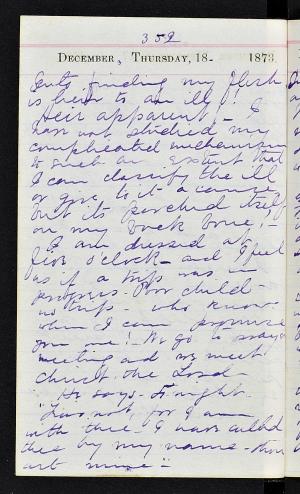 352
DECEMBER, THURSDAY, 18- 1873
finding my flesh
is heir to an ill!
Heir apparent - I
have not studied my
complicated mechanism
to such an extent that
I can classify the ill
or give to it a cause
but its perched itself
on my back bone, -
I am dressed at
five o'clock - and I feel
as if a trip was in
progress. Poor child -
no trip - who knows
when I can promise
you one! We go to prayer
meeting and we meet
Christ the Lord -
He says - to night -
"Fear not, for I am
with thee - I have called
thee by my name - thou
art mine"-